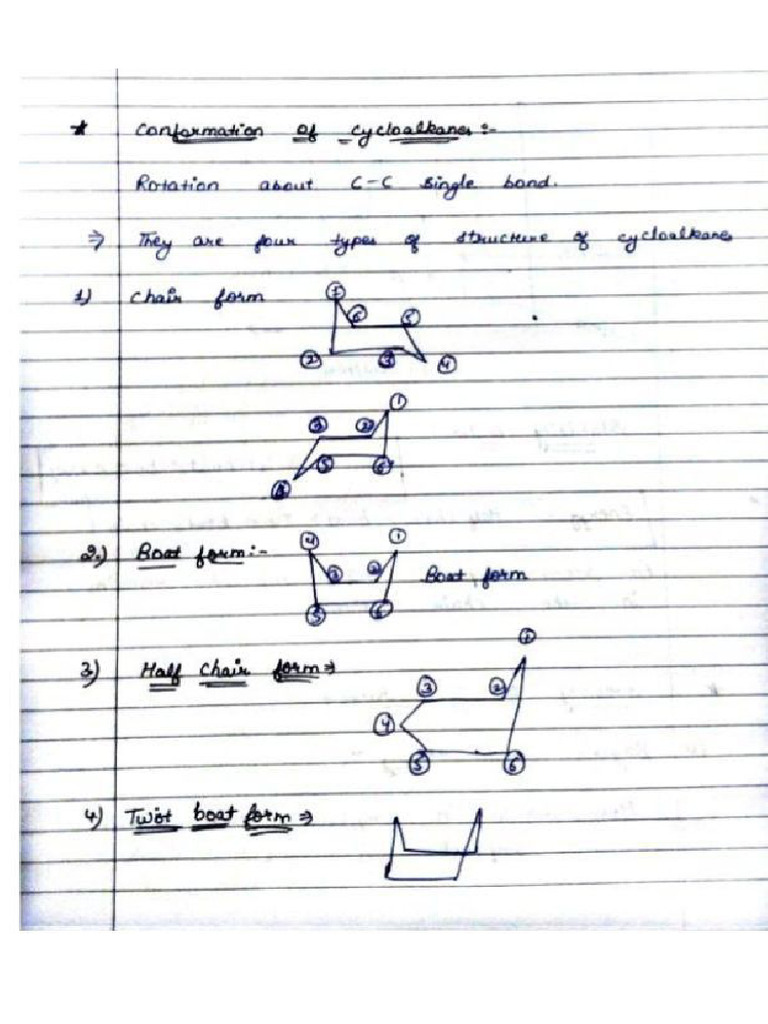 * Conformation of cycloalkanes:-
Rotation about C-C single bond.
⇒ They are four types of structure of cycloalkanes
1) Chair form
① ⑥ ⑤
② ③ ④
① 
③ ②
⑤ ⑥
2.) Boat form:-
④ ①
③ ②
Boat form
⑤ ⑥
3) Half chair form ⇒
①
③ ②
④
⑤ ⑥
4) Twist boat form ⇒